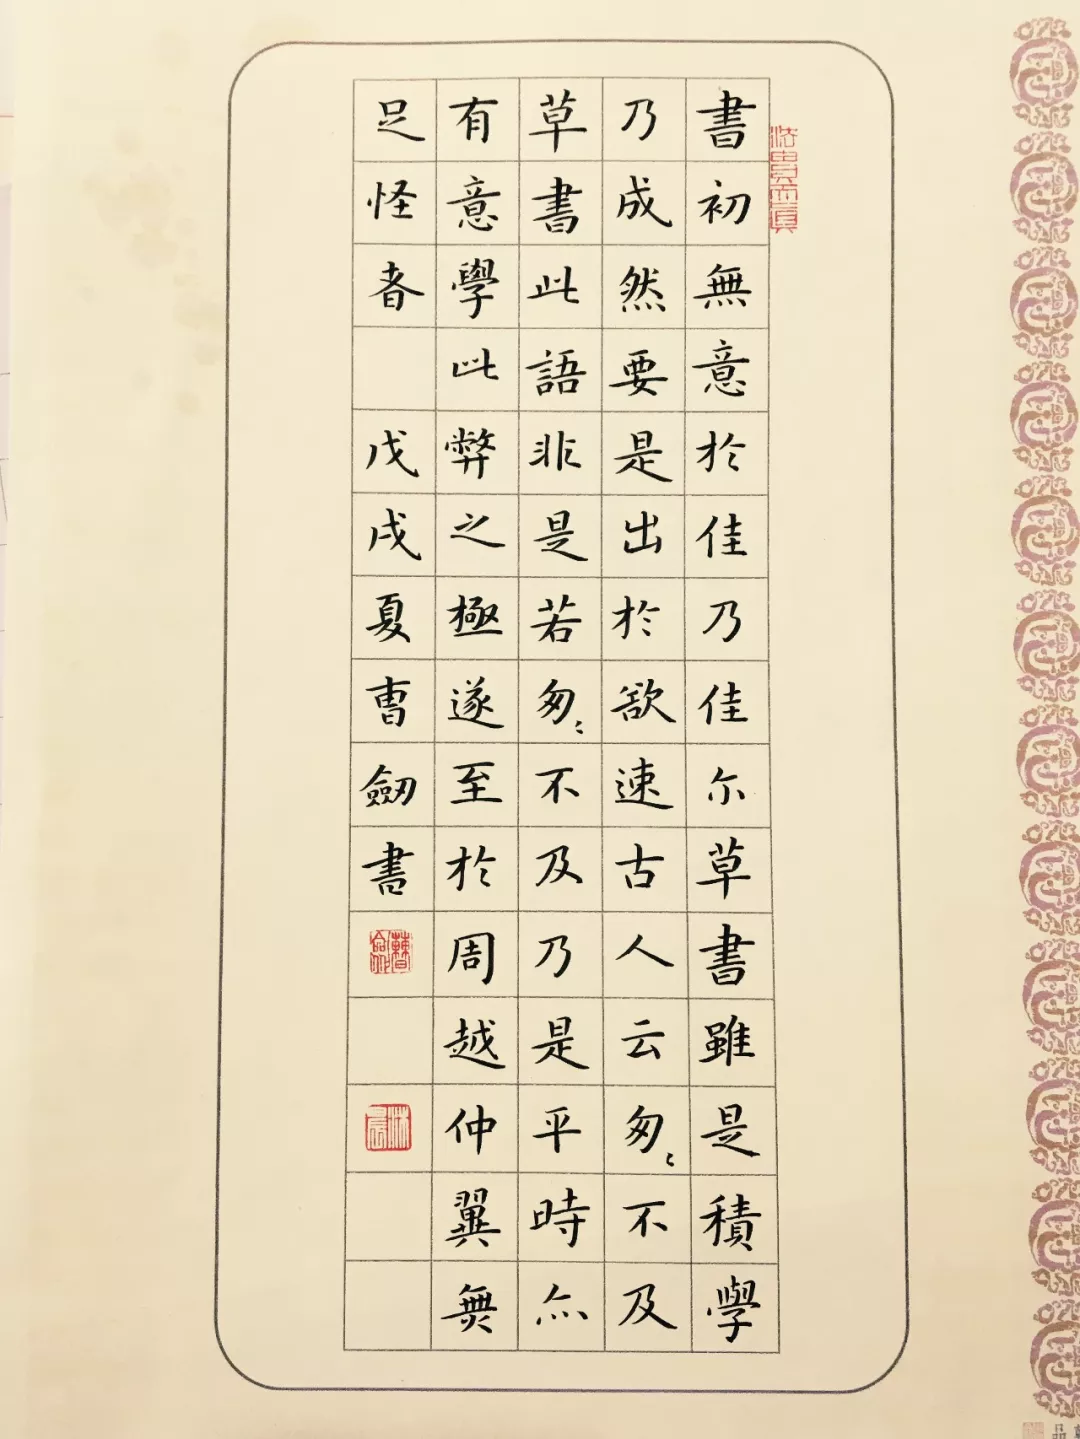 書初無意於佳乃佳尓草書雖是積學
乃成然要是出於欲速古人云匆〻不及
草書此語非是若匆〻不及乃是平時亦
有意學此弊之極遂至於周越仲翼無
足怪者 戊戌夏曺劒書
法貴天真